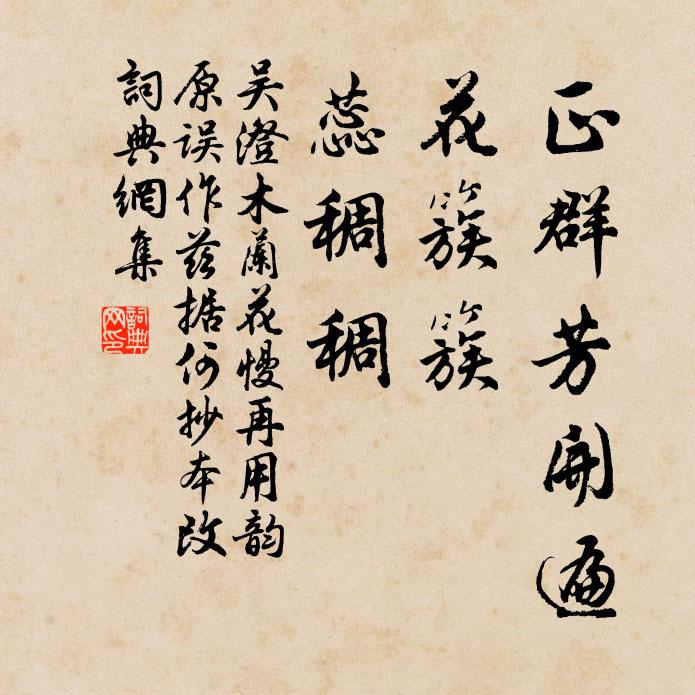 正群芳開遍
花簇簇
蕊稠稠
吴澄木蘭花慢再用韵
原误作茲据何抄本改
詞典網集
詞典網印